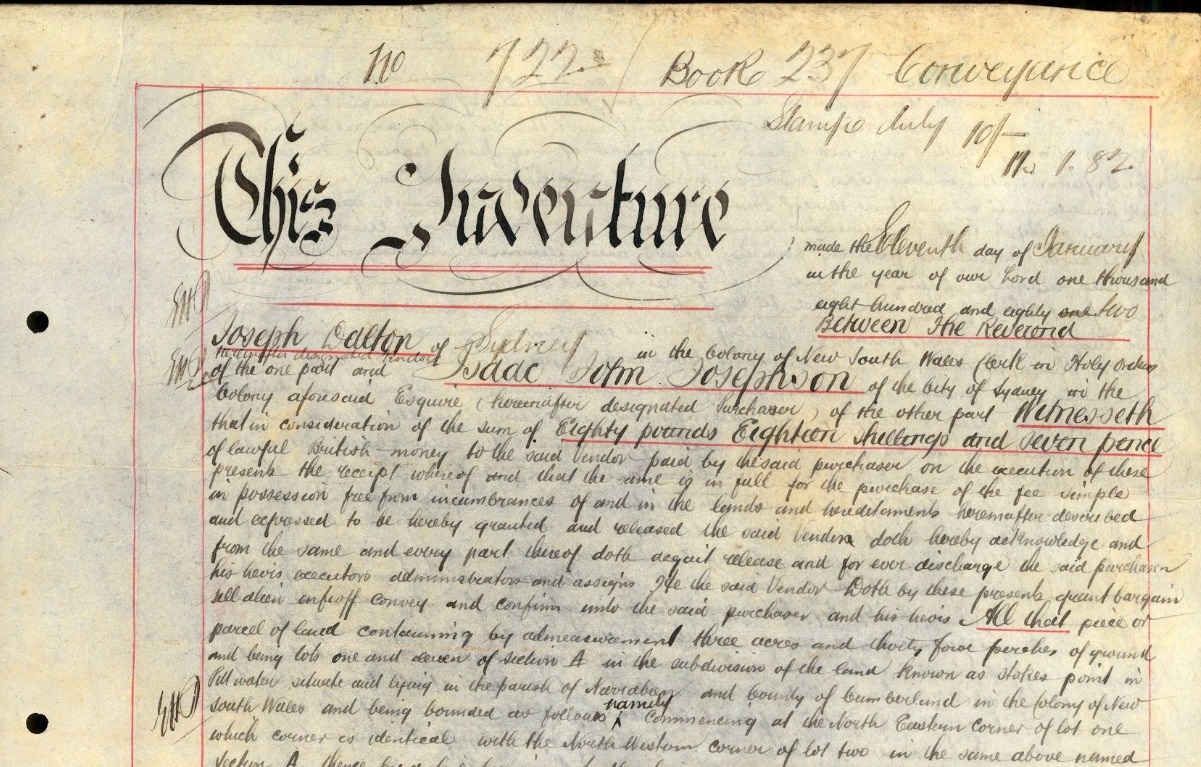 No 722 / Book 237 Conveyance
Stamp duty 10/-
11. 1. 82
This Indenture
made the Eleventh day of January
in the year of our Lord one thousand
eight hundred and eighty one two
Between The Reverend
Joseph Dalton of Sydney in the Colony of New South Wales Clerk in Holy Orders
hereinafter designated Vendor
of the one part and Isaac John Josephson of the City of Sydney in the
Colony aforesaid Esquire (hereinafter designated Purchaser) of the other part Witnesseth
that in consideration of the sum of Eighty pounds Eighteen shillings and seven pence
of lawful British money to the said Vendor paid by the said purchaser on the execution of these
presents the receipt whereof and that the same is in full for the purchase of the fee simple
in possession free from incumbrances of and in the lands and hereditaments hereinafter described
and expressed to be hereby granted and released the said Vendor doth hereby acknowledge and
from the same and every part thereof doth acquit release and for ever discharge the said purchaser
his heirs executors administrators and assigns He the said Vendor Doth by these presents grant bargain
sell alien enfeoff convey and confirm unto the said purchaser and his heirs All that piece or
parcel of land containing by admeasurement three acres and thirty four perches of ground
and being lots one and eleven of section A in the subdivision of the land known as stokes point in
Pitwater situate and lying in the parish of Narrabeen and County of Cumberland in the colony of New
South Wales and being bounded as follows namely Commencing at the North Eastern Corner of lot one
which corner is identical with the North Western corner of lot two in the same above named
Section A